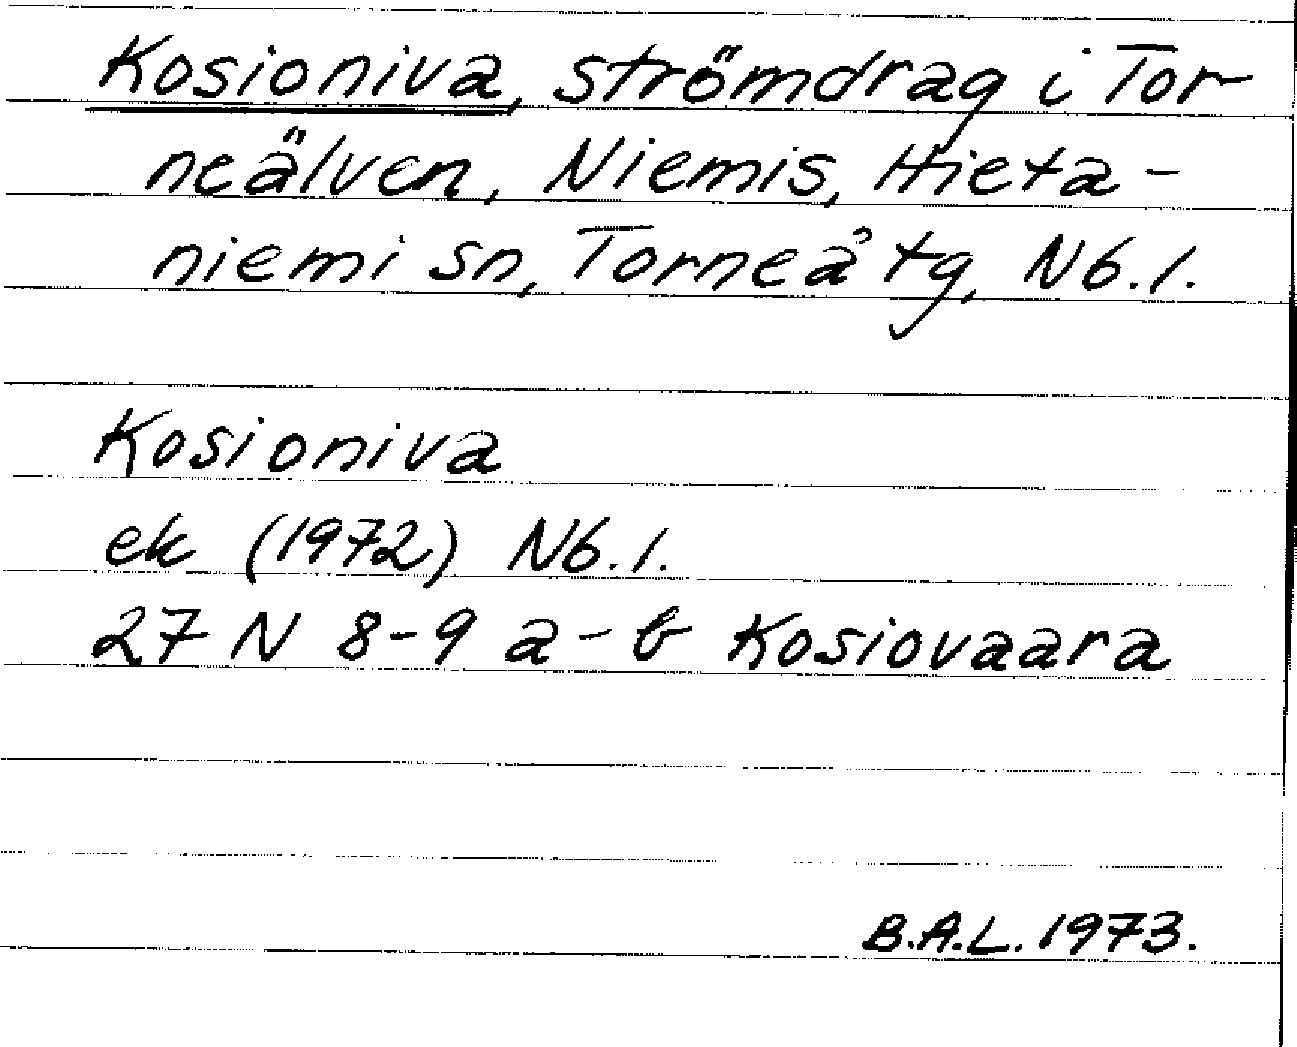 Kosioniva, strömdrag i Tor-
neälven, Niemis, Hieta-
niemi sn, Torneå tg, Nb.l.
Kosioniva
ek (1972) Nb.l.
27 N 8-9 a-b Kosiovaara
B.A.L. 1973.